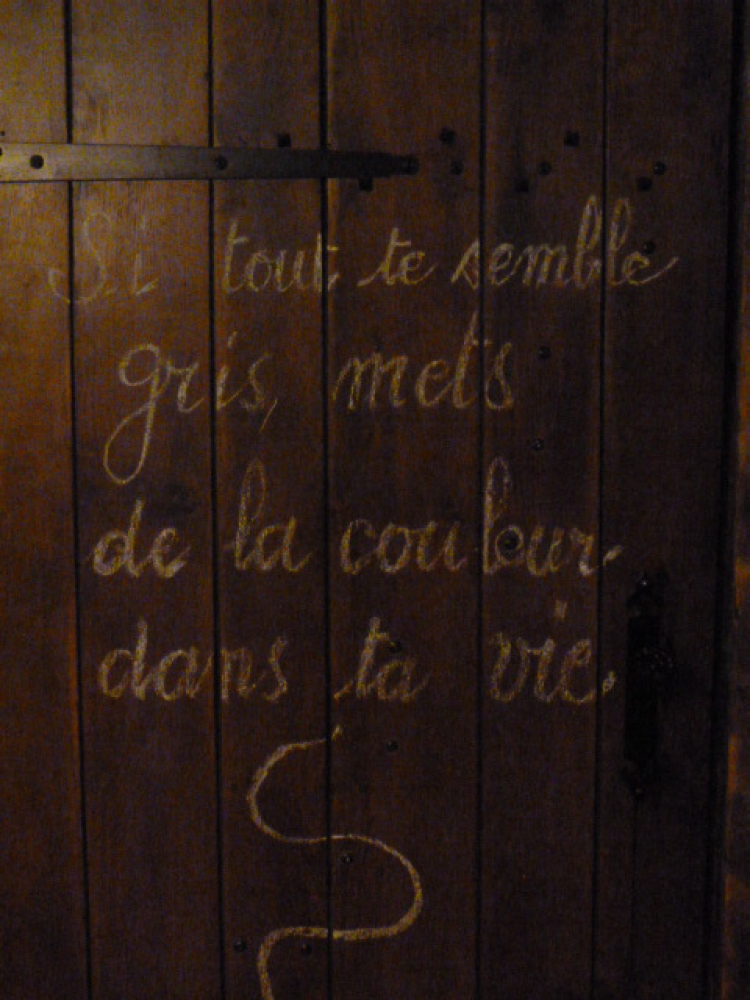 Si tout te semble
gris, mets
de la couleur
dans ta vie.